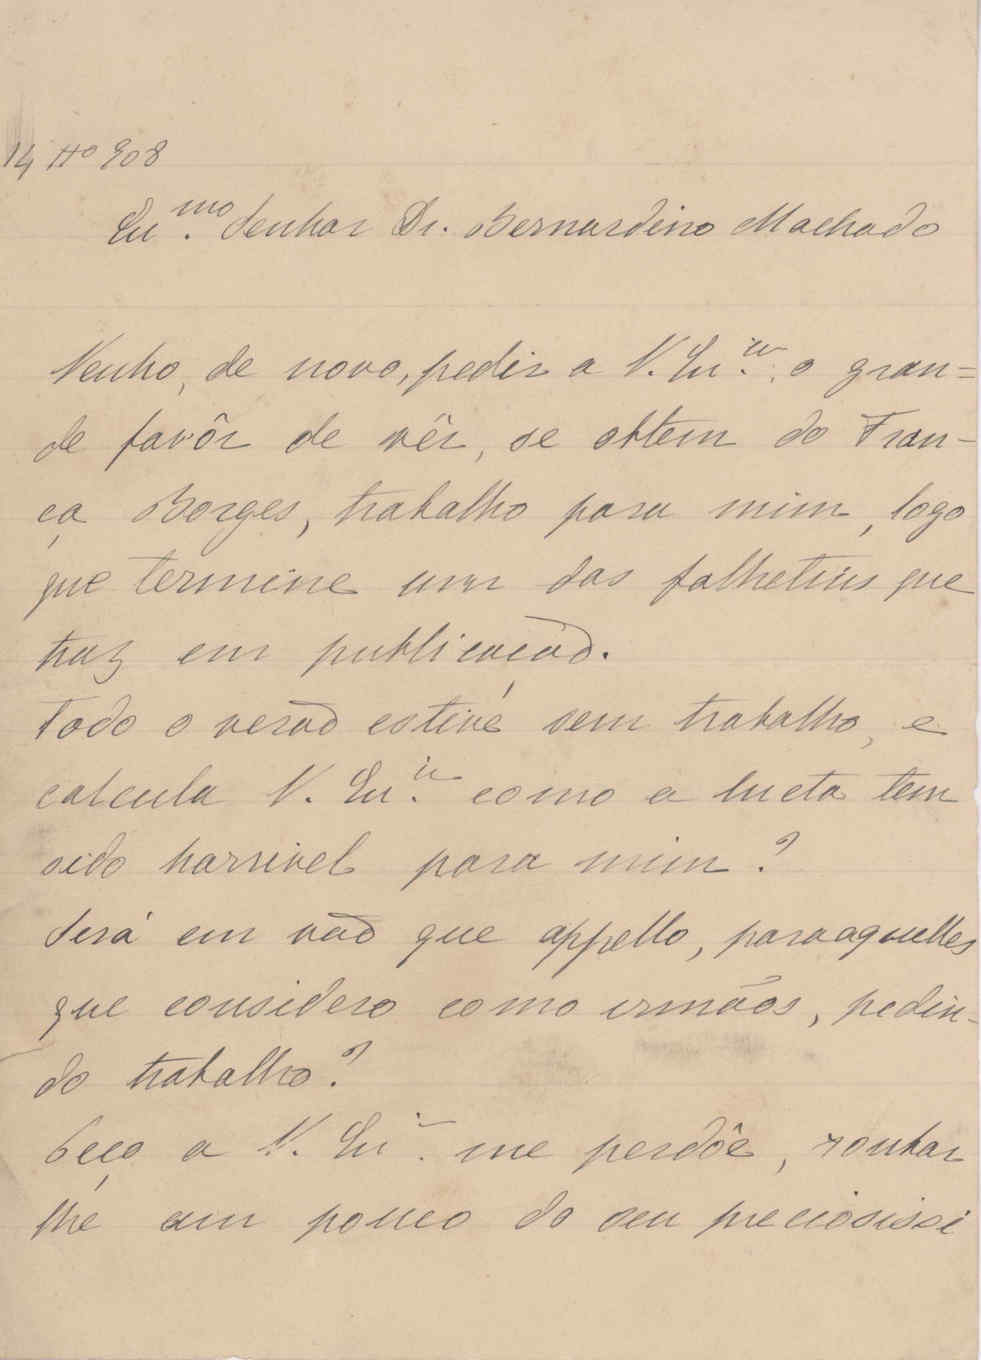 14 908
Ex.mo Senhor Dr. Bernardino Machado
Venho, de novo, pedir a V. Ex.ia, o gran=
de favôr de vêr, se obtem do Fran-
ça Borges, trabalho para mim, logo
que termine um dos folhetins que
traz em publicação.
Todo o verão estive sem trabalho, e
calcula V. Ex.ia como a lucta tem
sido horrivel para mim?
Será em vão que appello, para aquelles
que considero como irmãos, pedin-
do trabalho?
Peço a V. Ex.ia me perdôe, roubar
lhe um pouco do seu preciosissi